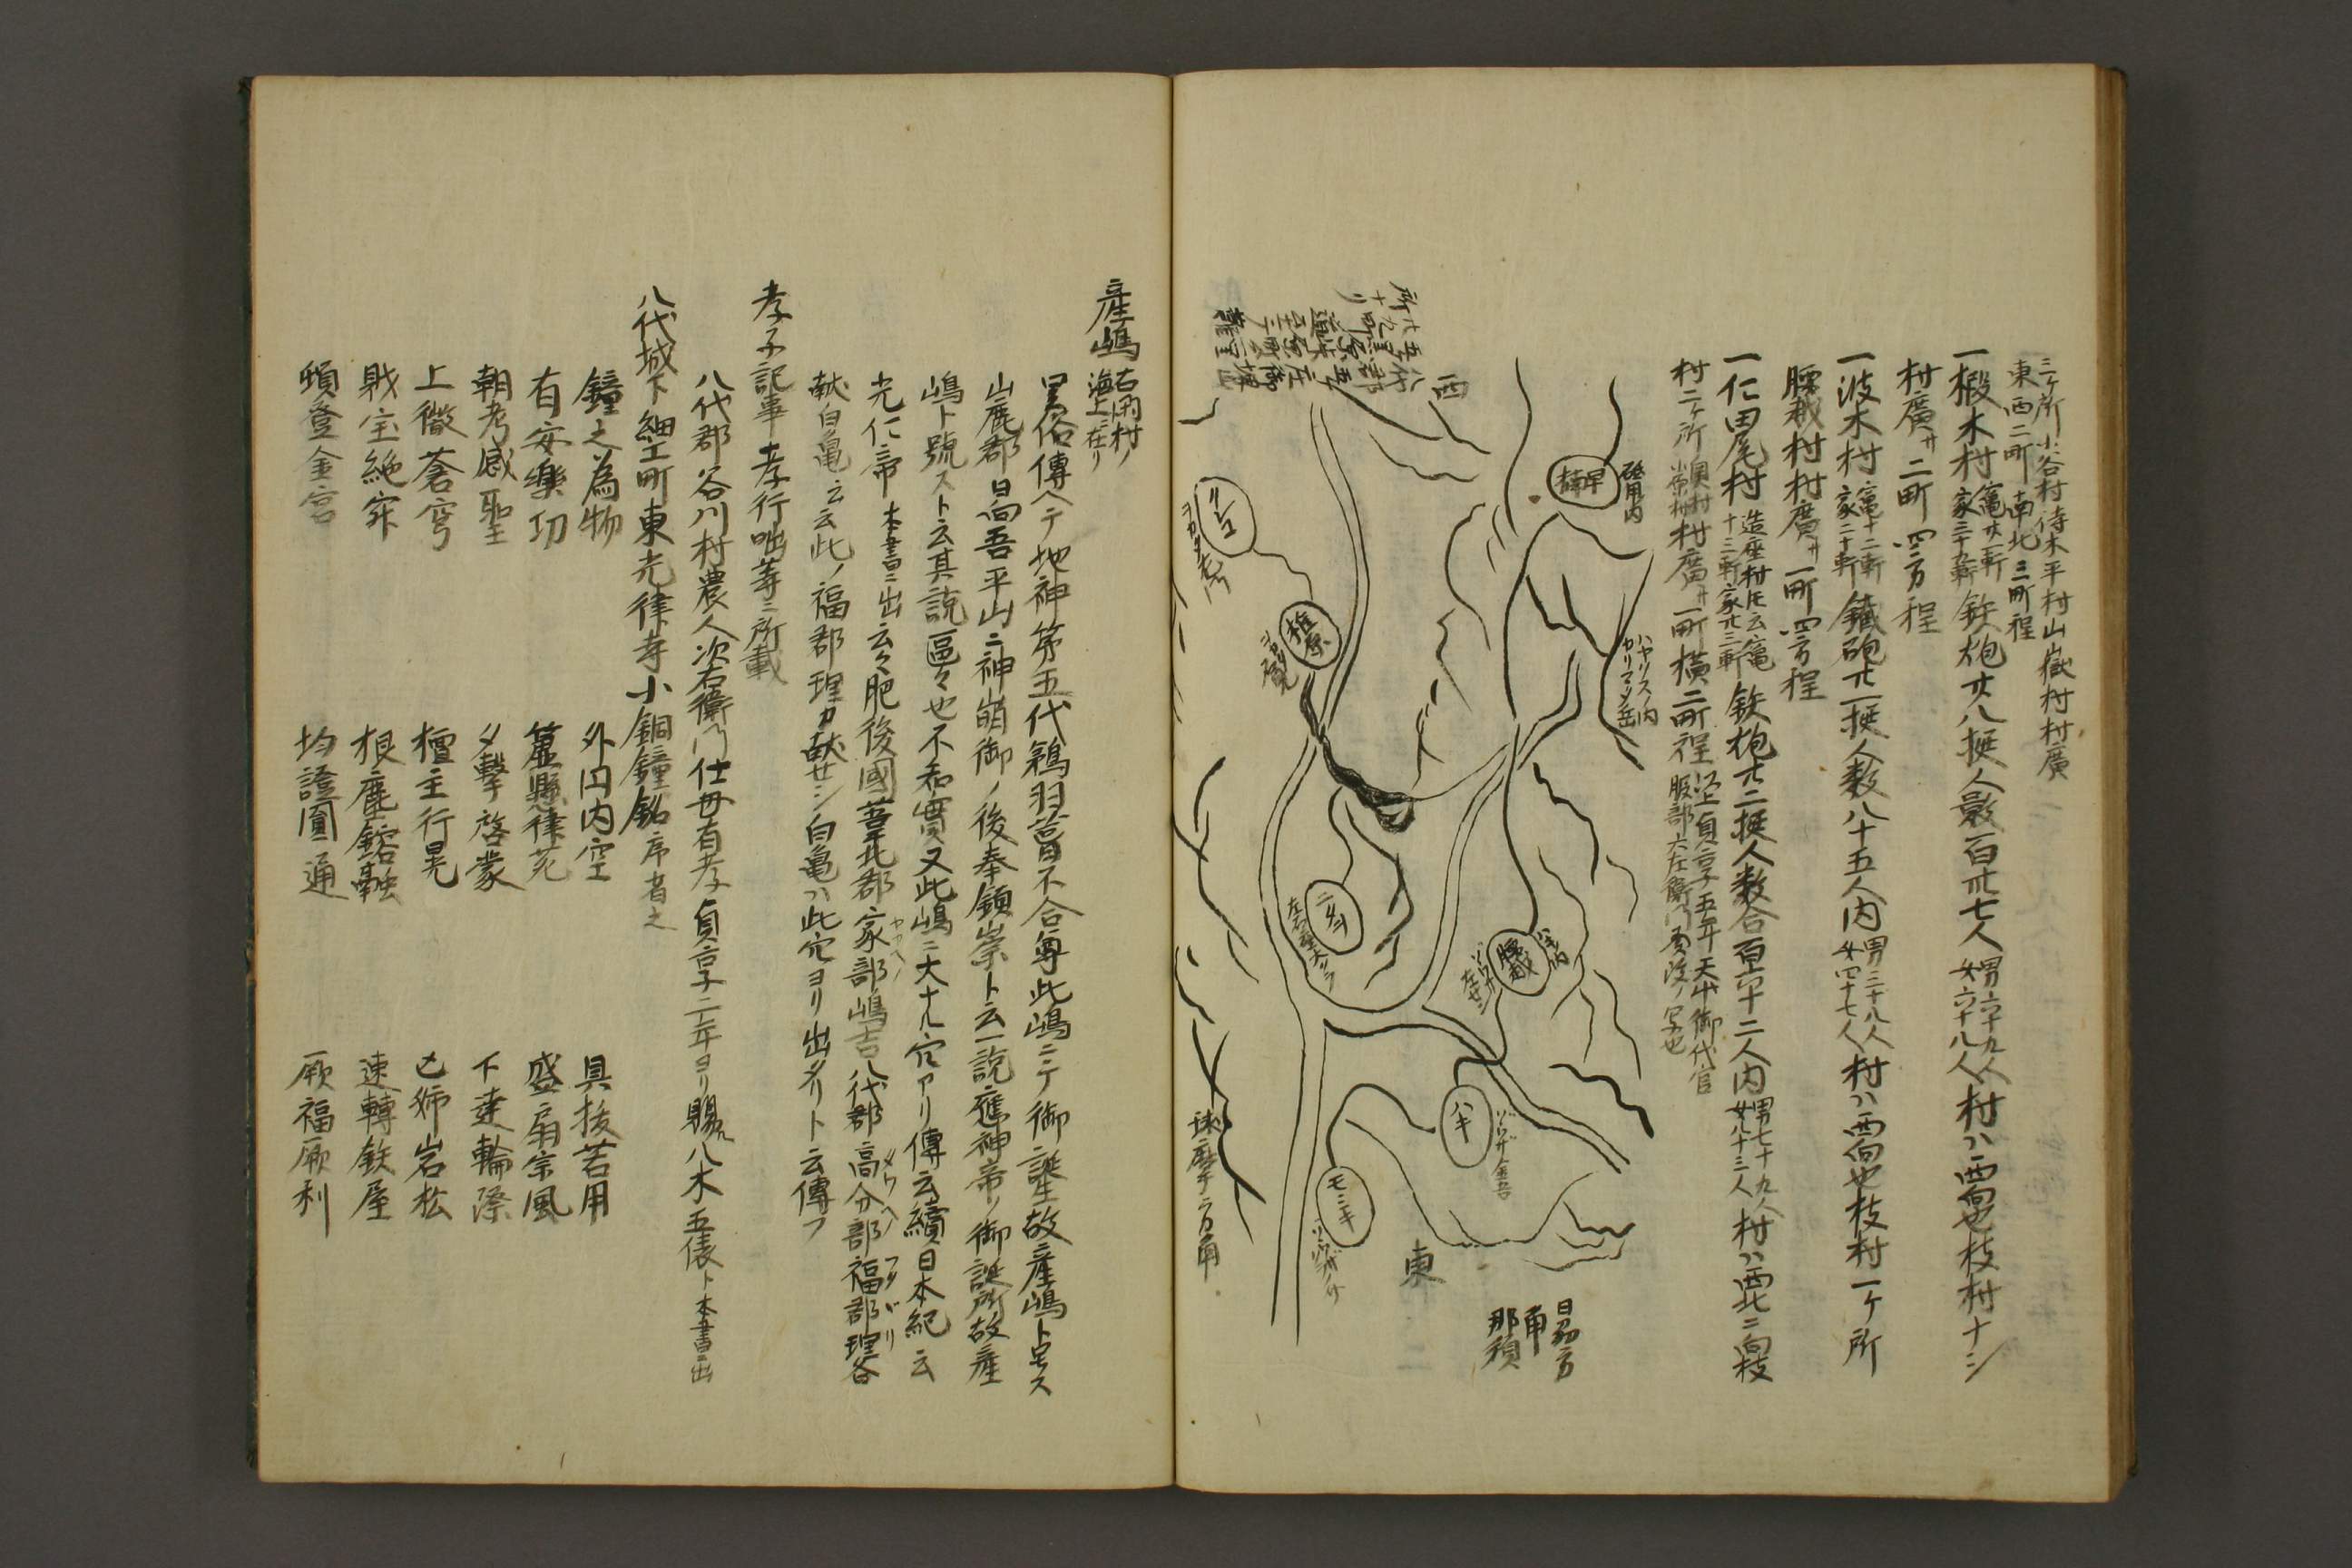 三ヶ所小谷村侍木平村山嶽村村廣
東西二町南北三町程
一椴木村竈廿一軒家三十九軒鉄炮廿八挺人数百卅七人男六十九人女六十八人村ハ西向也枝村ナシ
村廣サ二町四方程
一波木村竈十二軒家二十軒鐵砲廿一挺人数八十五人内男三十八人女四十七人村ハ西向也枝村一ヶ所
腰越村村廣サ一町四方程
一仁田尾村造座村氏云竈十三軒家廿三軒鉄炮廿二挺人数合百六十二人内男七十九人女八十三人村ハ西北ニ向枝
村二ヶ所村廣サ一町横二町程
以上貞享五年天草御代官
服部六左衛門
砥用内
早楠
ハヤリスノ内
カリマタ岳
西
椎原
腰越
ニタヲ
ハキ
モミキ
東
日向方
那須
球麻ノ方角
産嶋
古閑村ノ海上ニ在リ
里俗傳ヘテ地神第五代鵜羽葺不合尊此嶋ニテ御誕生故産嶋ト号ス
山鹿郡日向吾平山ニ神崩御ノ後奉鎮崇ト云一説應神帝ノ御誕所故産
嶋ト號スト云其説區々也不知實又此嶋ニ大ナル穴アリ傳云續日本紀云
光仁帝本書ニ出云々肥後國葦北郡家部嶋吉八代郡高分部福郡理各
ヤカヘノ
フタガリ
献白亀云云此ノ福郡理カ献セシ白亀ハ此穴ヨリ出タリト云傳フ
孝子記事孝行咄等ニ所載
八代郡谷川村農人次右衛門仕母有孝貞享二年ヨリ賜ル八木五俵ト本書ニ出
八代城下細工町東光律寺小銅鐘銘序者之
鐘之為物　外円内空　具抜若用
有安樂功　簴懸律苑　盛扇宗風
朝考感聖　夕撃啓蒙　下達輪際
上徹蒼穹　檀主行晃　匕姉岩松
戝宝絶穽　根塵鎔融　速轉鉄屋
頓登金宮　均證圓通　厥福厥利